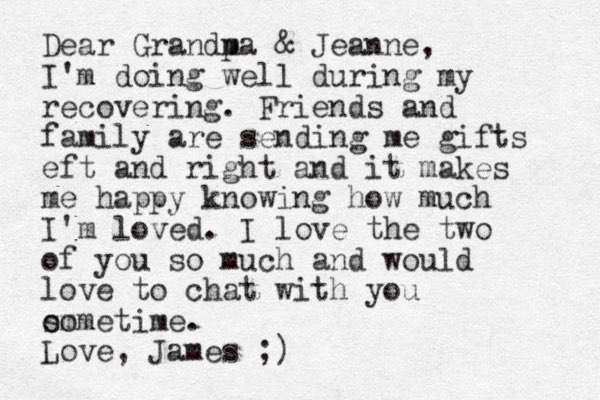 Dear Grandpa & Jeanne,
I'm doing well during my
recovering. Friends and
family are sending me gifts
eft and right and it makes
me happy knowing how much
I'm loved. I love the two
of you so much and would
love to chat with you
sometime.
Love, James ;)